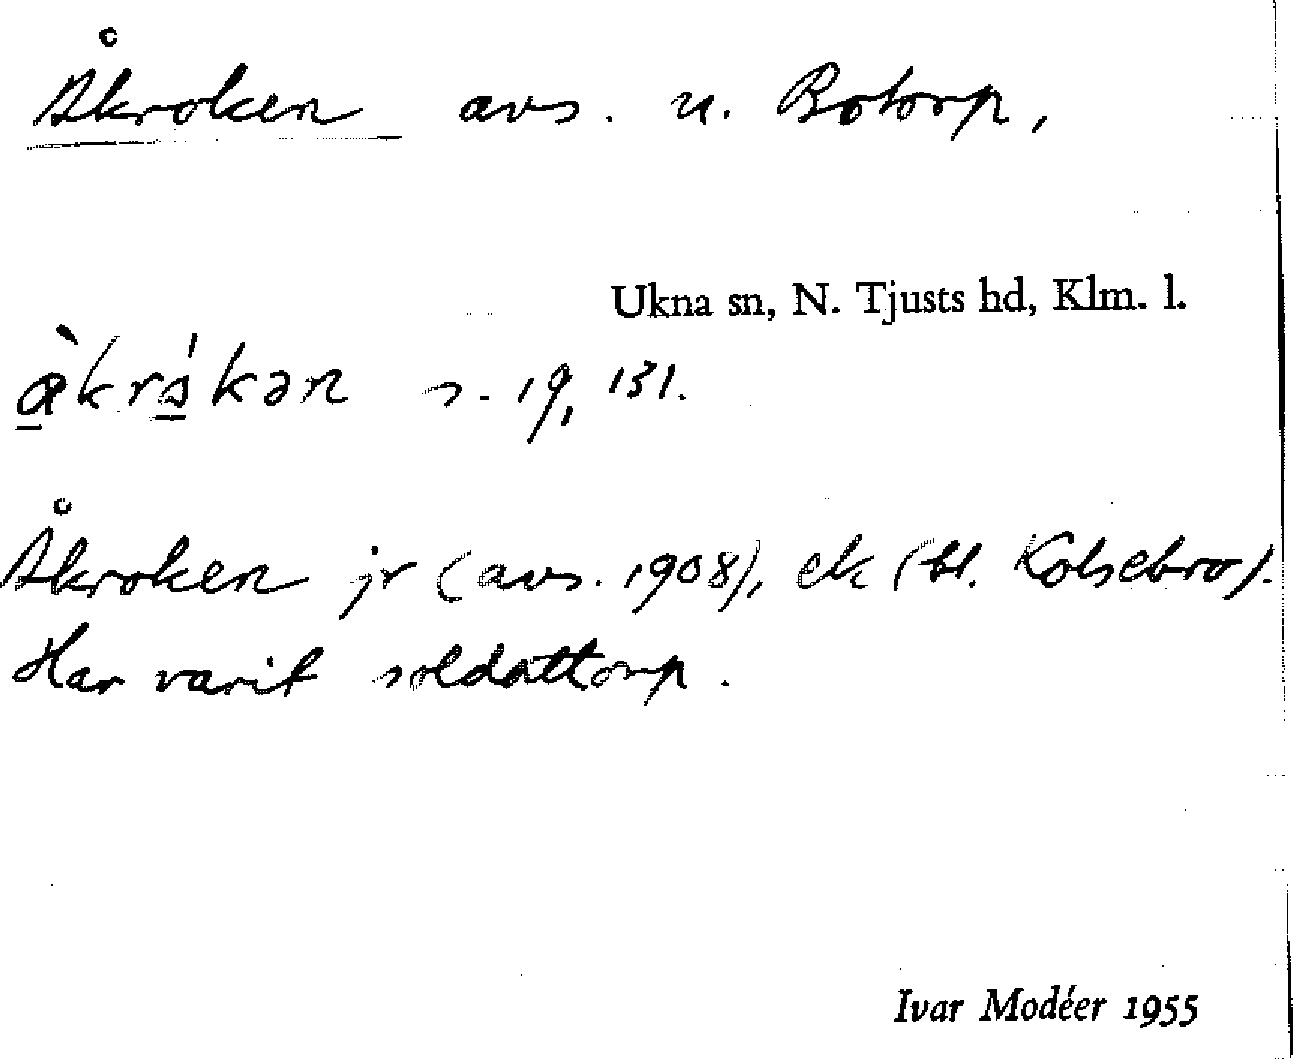 Åkroken avs. u. Botorp,
Ukna sn, N. Tjusts hd, Klm. l.
æ̀krákən s. 19, 131.
Åkroken jr (avs. 1908), ek (bl. Kolsebro).
Har varit soldattorp.
Ivar Modéer 1955